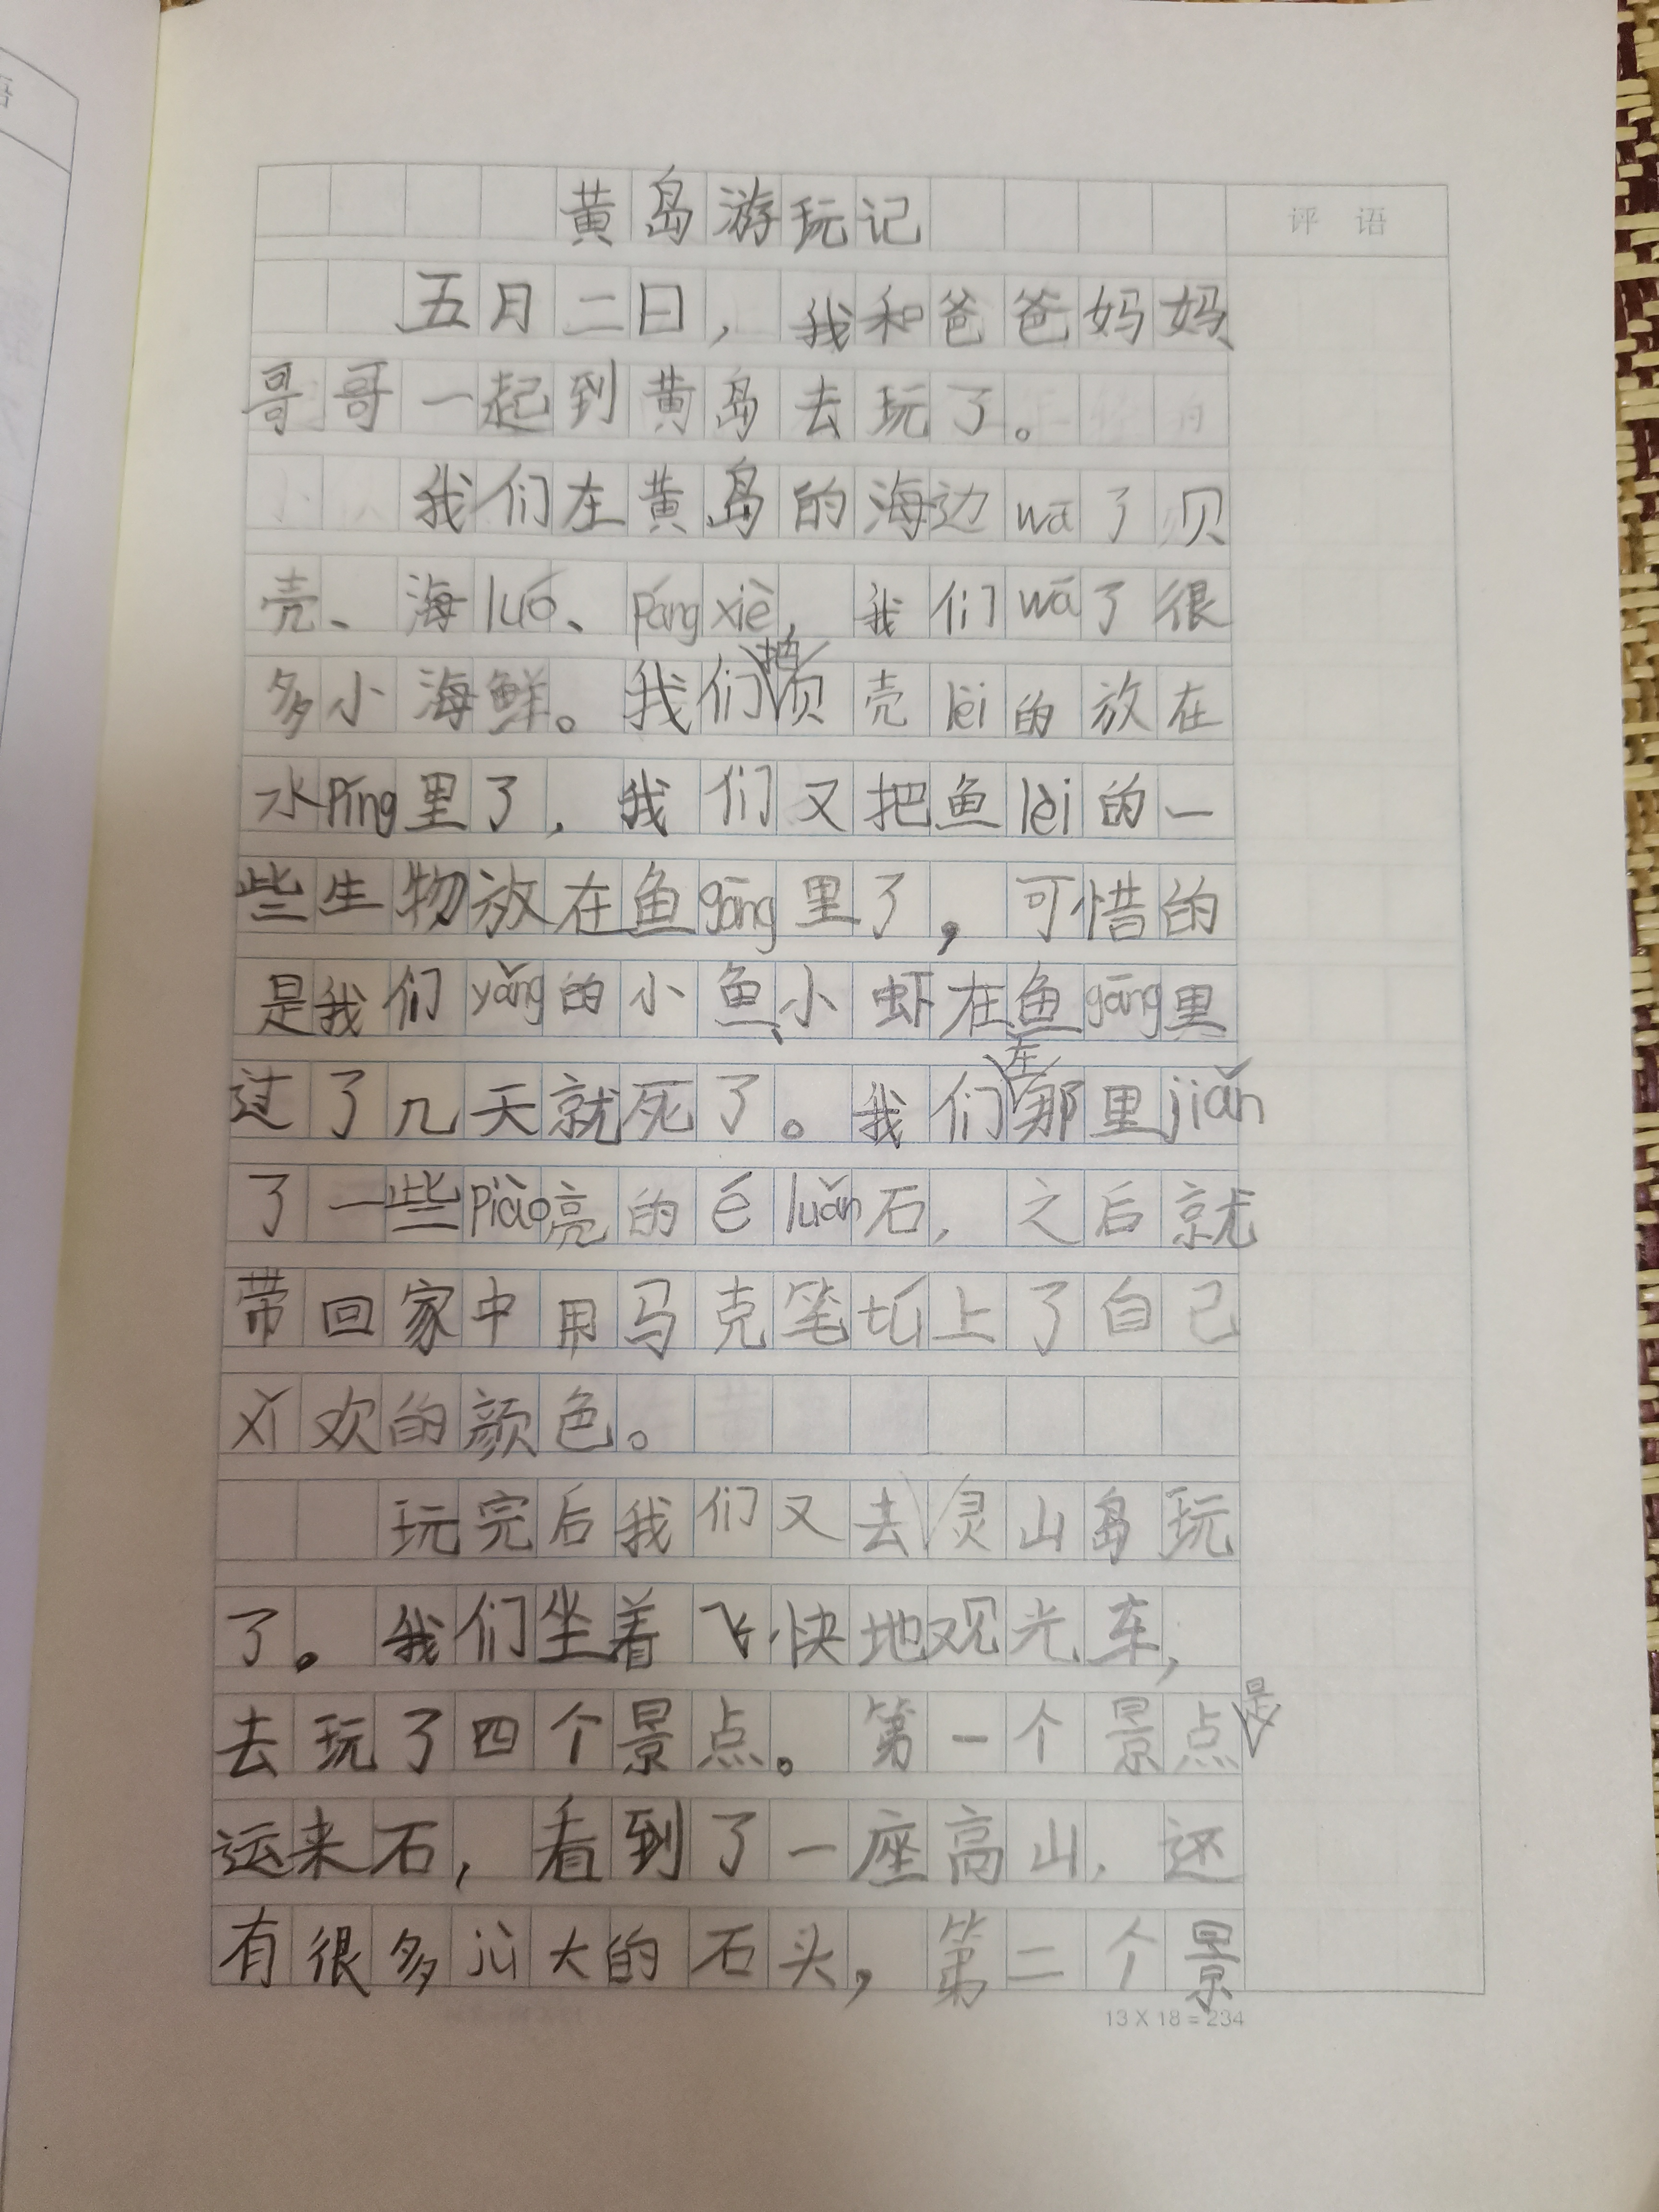 黄岛游玩记
评语
五月二日，我和爸爸妈妈、
哥哥一起到黄岛去玩了。
我们在黄岛的海边wā了贝
壳、海luó、páng xiè，我们wā了很
多小海鲜。我们把贝壳lèi的放在
水píng里了，我们又把鱼lèi的一
些生物放在鱼gāng里了，可惜的
是我们yǎng的小鱼、小虾在鱼gāng里
过了几天就死了。我们在那里jiǎn
了一些piào亮的é luǎn石，之后就
带回家中用马克笔tú上了自己
xǐ欢的颜色。
玩完后我们又去灵山岛玩
了。我们坐着飞快地观光车，
去玩了四个景点。第一个景点是
运来石，看到了一座高山，还
有很多jù大的石头，第二个景
13 X 18 = 234